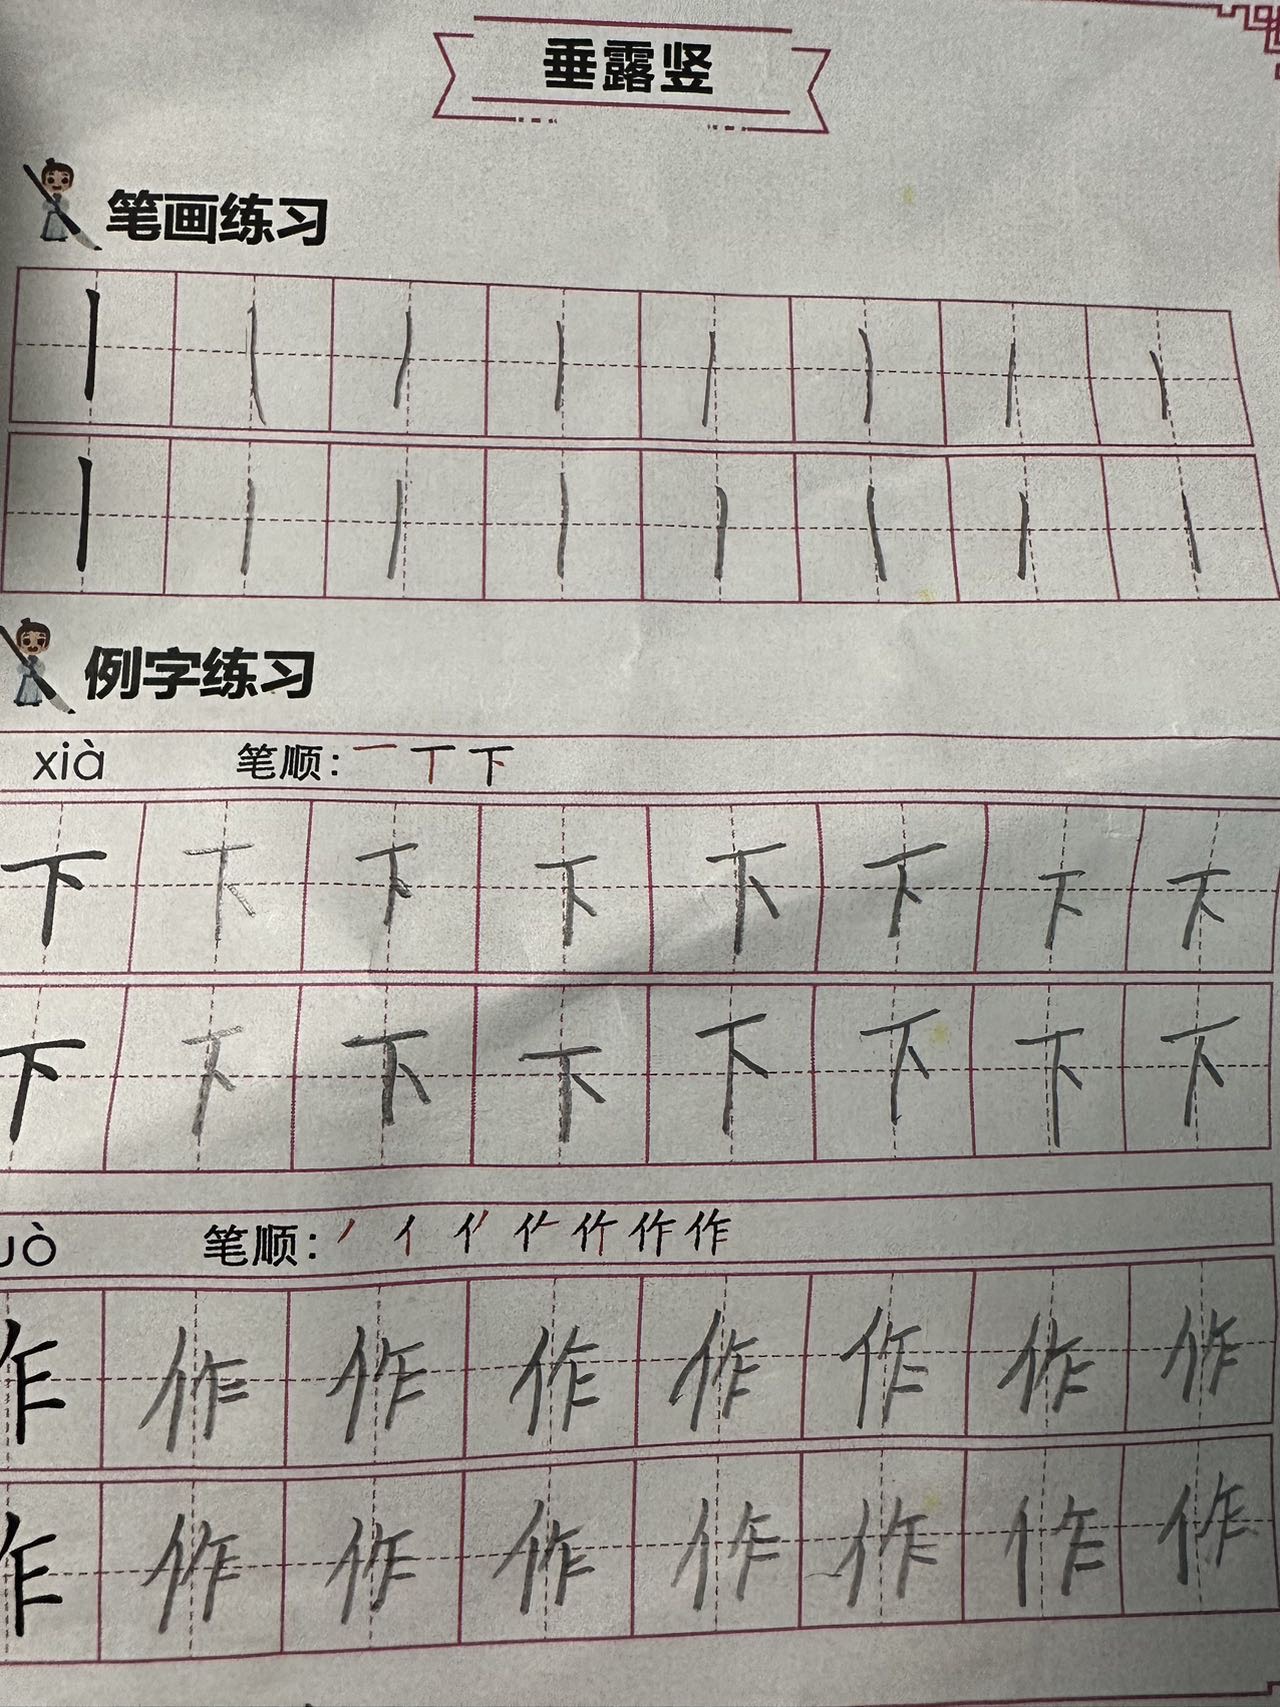 垂露竖
笔画练习
丨丨丨丨丨丨丨丨
丨丨丨丨丨丨丨丨
例字练习
xià 笔顺：一 丅 下
下下下下下下下下
下下下下下下下下
uò 笔顺：
作作作作作作作作
作作作作作作作作